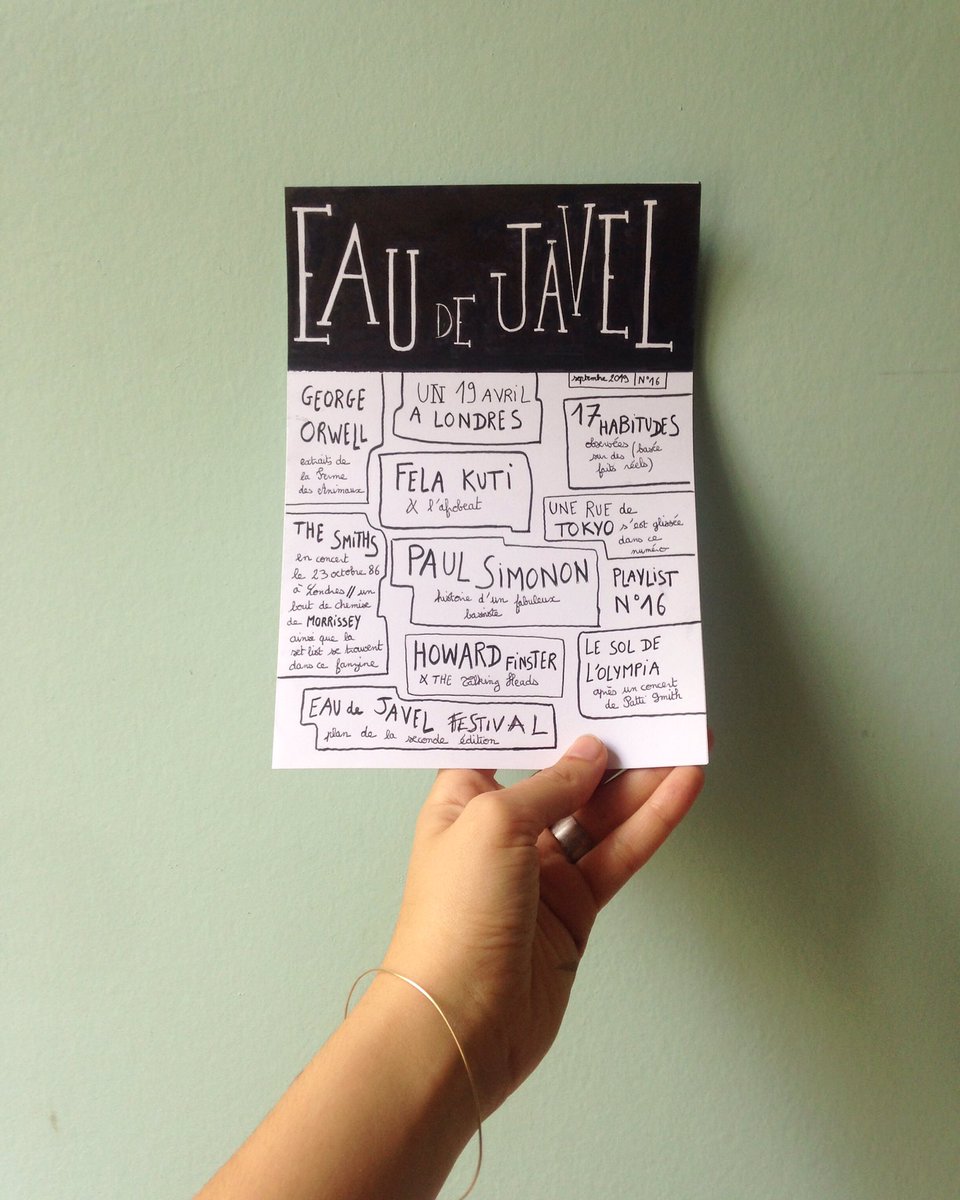 EAU DE JAVEL
septembre 2019 N°16
GEORGE
ORWELL
extraits de
la Ferme
des Animaux
UN 19 AVRIL
A LONDRES
17 HABITUDES
observées (basée
sur des
faits réels)
FELA KUTI
& l'afrobeat
UNE RUE de
TOKYO s'est glissée
dans ce
numéro
THE SMITHS
en concert
le 23 octobre 86
à Londres // un
bout de chemise
de MORRISSEY
ainsi que la
set list se trouvent
dans ce fanzine
PAUL SIMONON
histoire d'un fabuleux
bassiste
PLAYLIST
N°16
HOWARD FINSTER
& THE Talking Heads
LE SOL DE
L'OLYMPIA
après un concert
de Patti Smith
EAU de JAVEL FESTIVAL
plan de la seconde édition